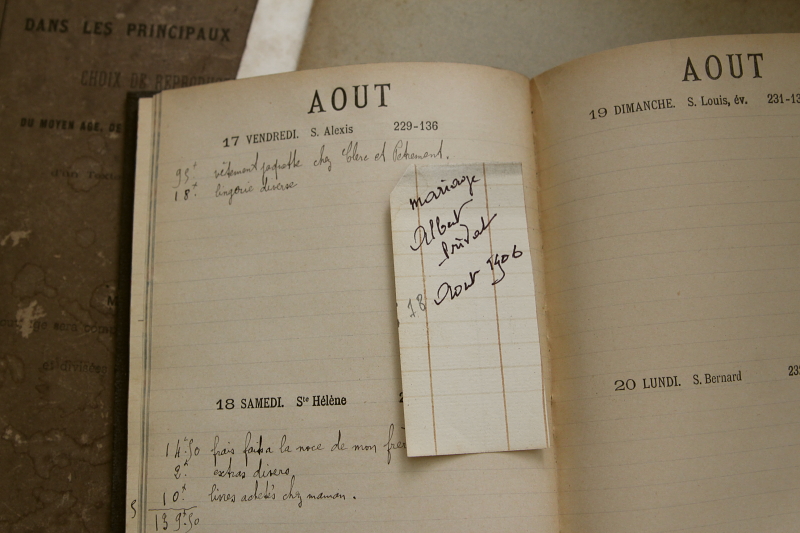 DANS LES PRINCIPAUX
CHOIX DE REPRODUC
DU MOYEN AGE, DE
AOUT
17 VENDREDI. S. Alexis 229-136
93f vêtement jaquette chez Clerc et Petremant.
18f lingerie diverse
mariage
Albert
Privat
18 Aout 1906
18 SAMEDI. Ste Hélène 2
14f.50 frais faits a la noce de mon frè
2f extras divers
10f livres achetés chez maman.
5
139f.50
AOUT
19 DIMANCHE. S. Louis, év. 231-13
20 LUNDI. S. Bernard 23